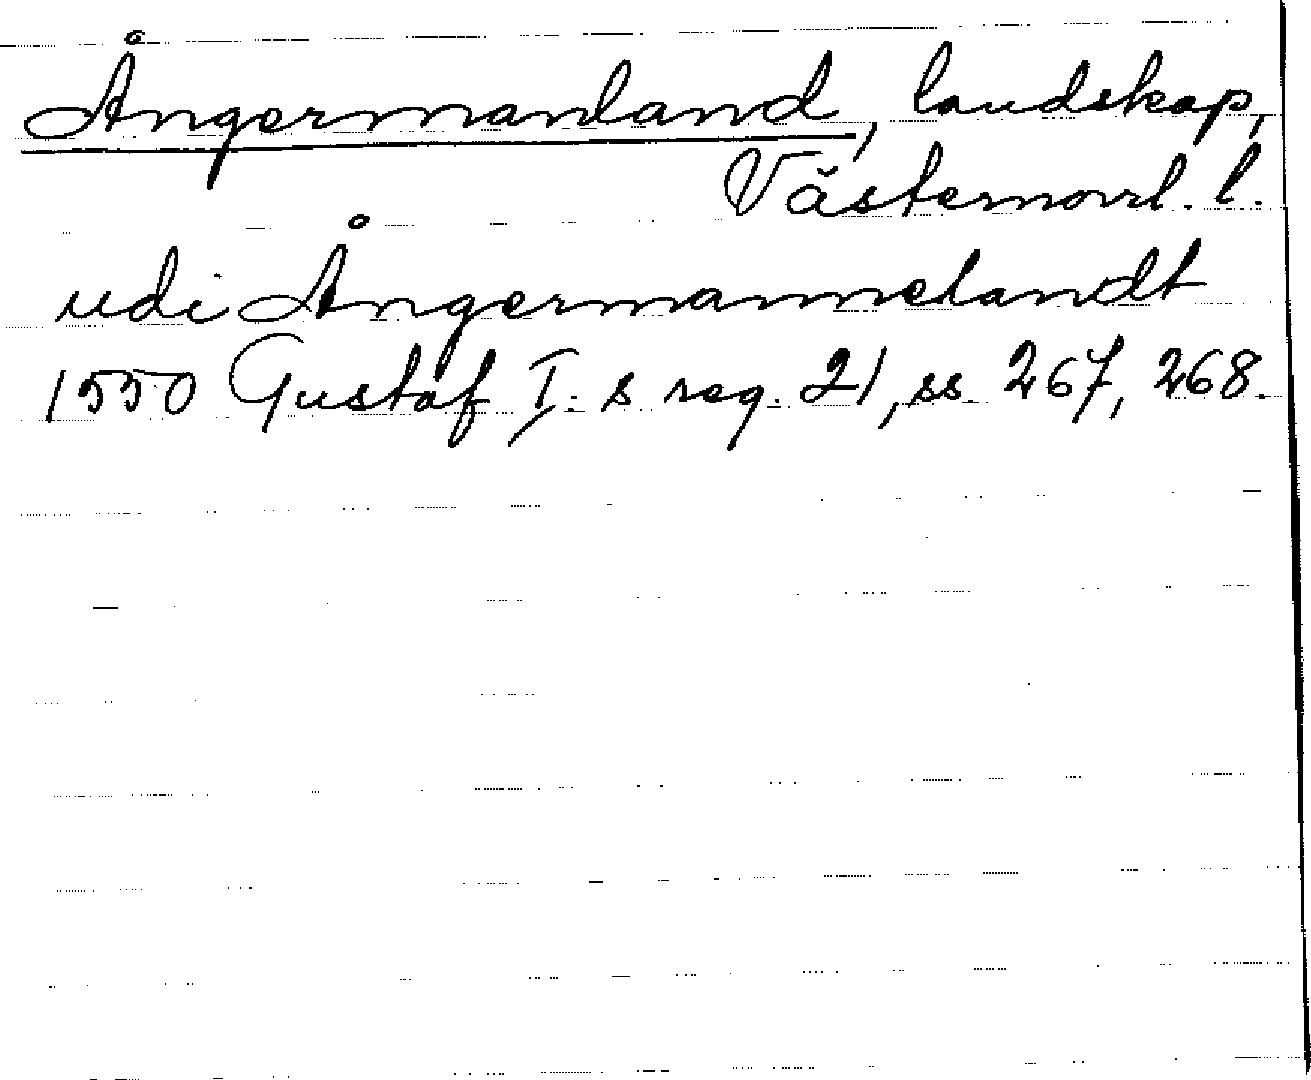 Ångermanland, landskap,
Västernorrl. l.
udi Ångermannelandt
1550 Gustaf I. s reg. 21, ss. 267, 268.